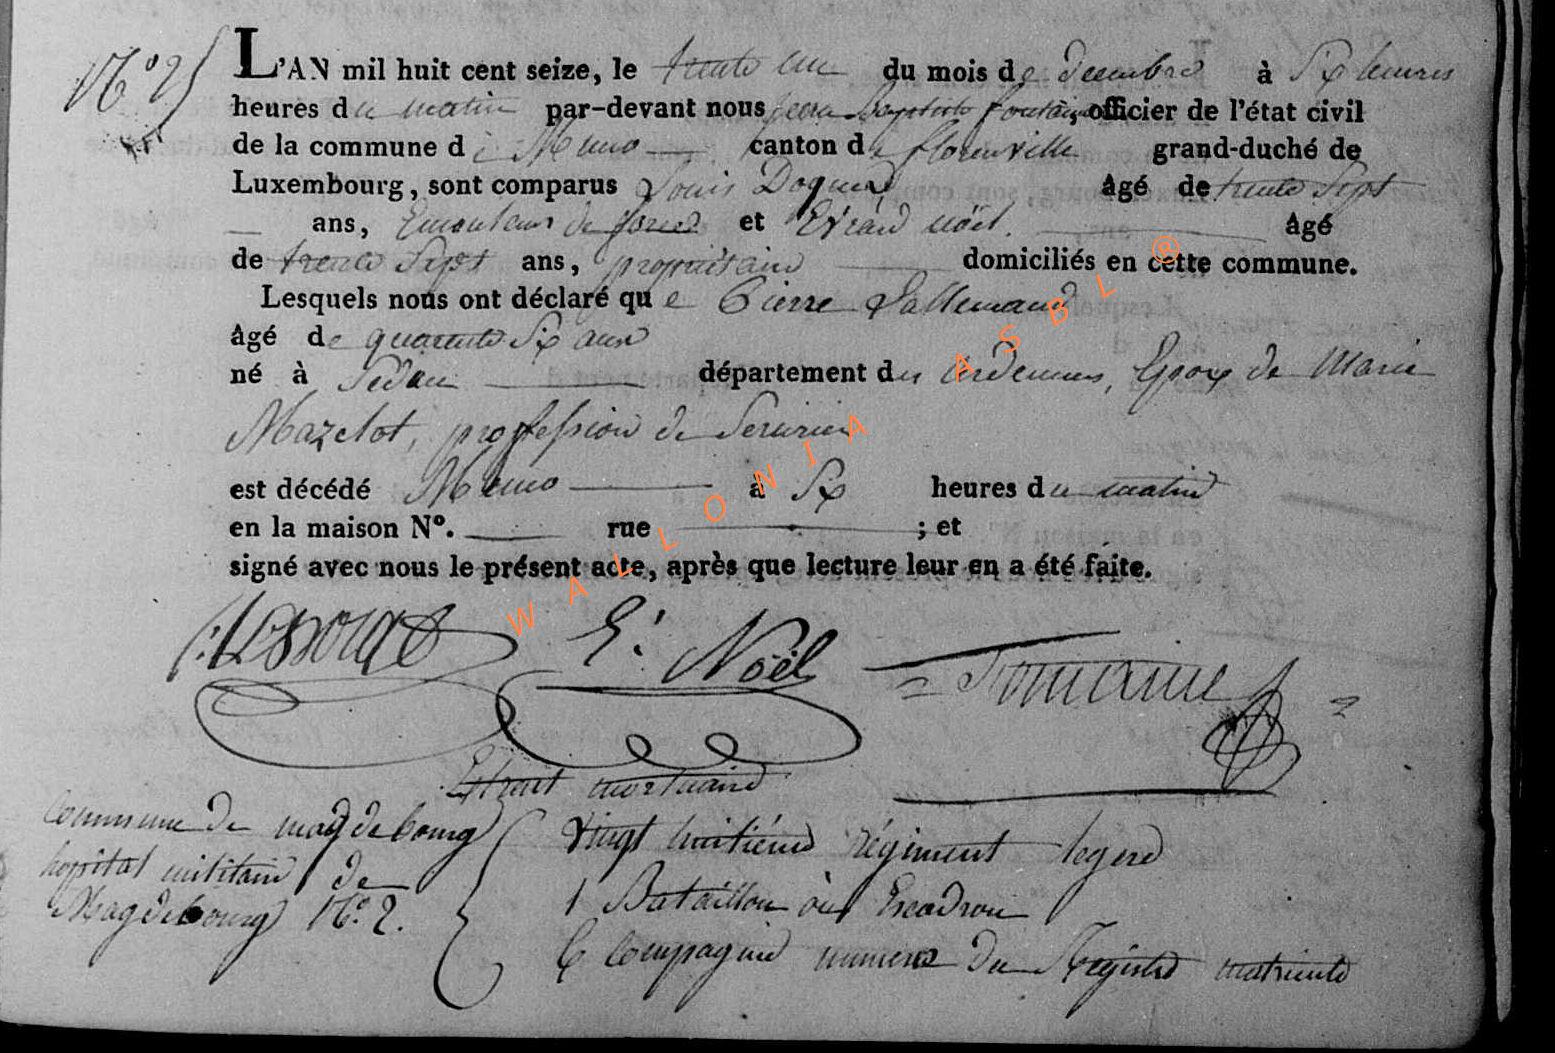 N° 25
L'AN mil huit cent seize, le trente un du mois de decembre à Six heures
heures du matin par-devant nous jean Baptiste fontaine officier de l'état civil
de la commune de Muno canton de florenville grand-duché de
Luxembourg, sont comparus Louis Doquer âgé de trente Sept
ans, Emouleur de forer et Evrard nöel. âgé
de trente Sept ans, propriétaire domiciliés en cette commune.
Lesquels nous ont déclaré que Pierre Lallemand
âgé de quarante Six ans
né à Sedan département des Ardennes, Epoux de Marie
Mazelot, profession de Serurier
est décédé Muno à Six heures du matin
en la maison N°. rue ; et
signé avec nous le présent acte, après que lecture leur en a été faite.
E: Nöel Fontaine
Extrait mortuaire
Commune de magdebourg
hopital militaire de
Magdebourg N° 2.
Vingt huitiéme régiment legere
1 Bataillon où Escadron
6 Compagnie numero du Registre matricule
WALLONIA ASBL @